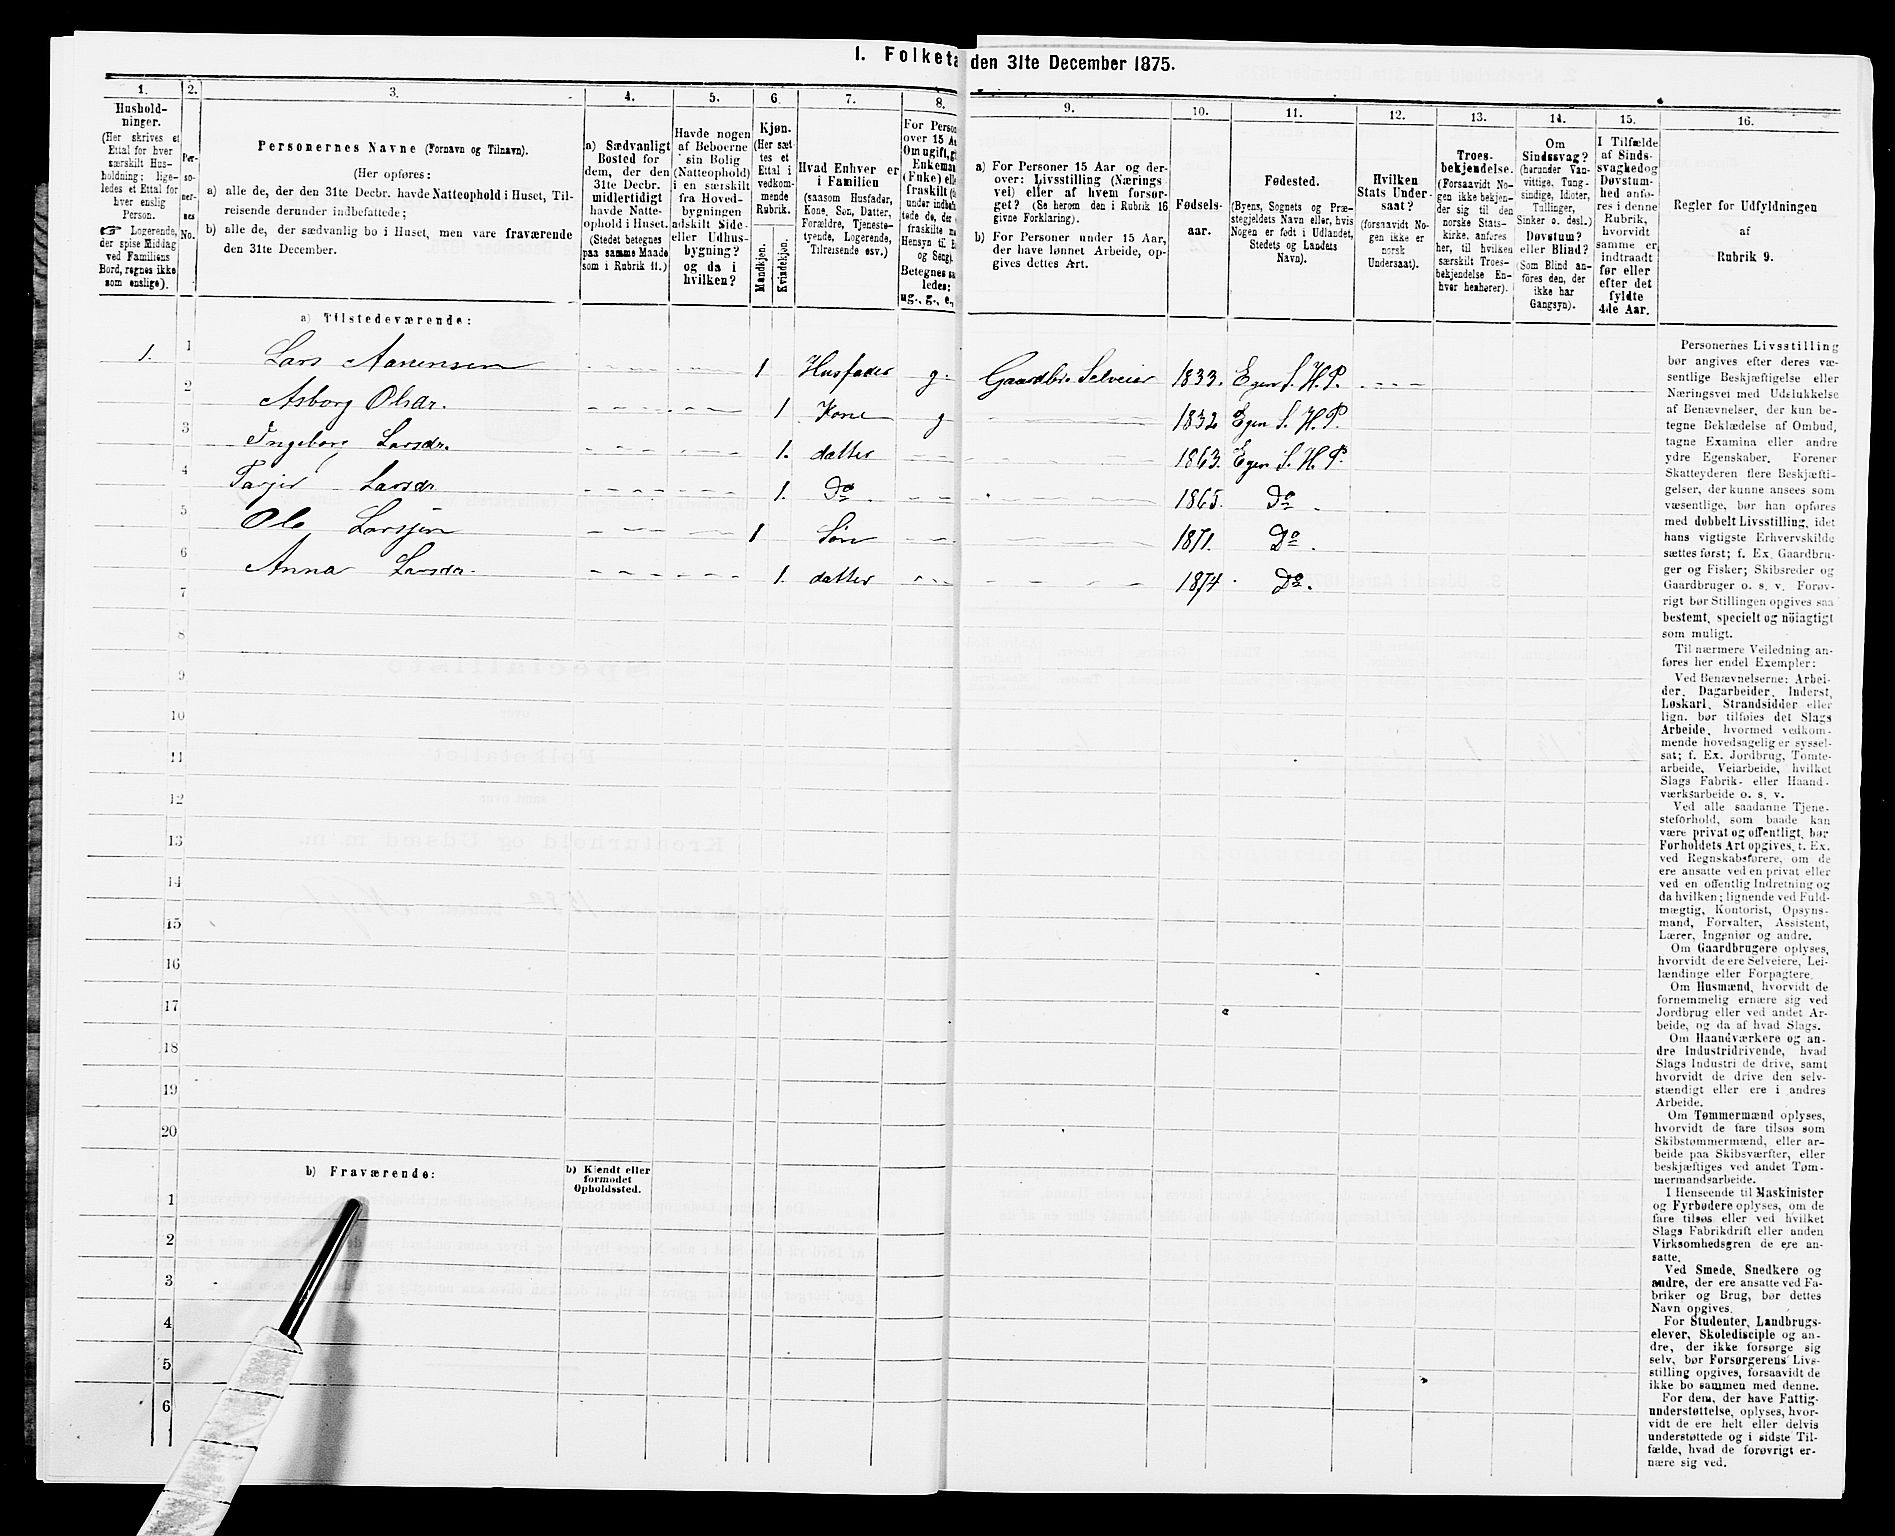 I. Folketa den 31te December 1875.
1.
Hushold-
ninger.
(Her skrives et
Ettal for hver
særskilt Hus-
holdning; lige-
ledes et Ettal for
hver enslig
Person.
☞ Logerende,
der spise Middag
ved Familiens
Bord, regnes ikke
som enslige).
2.
Per-
so-
ner-
nes
No.
3.
Personernes Navne (Fornavn og Tilnavn).
(Her opføres:
a) alle de, der den 31te Decbr. havde Natteophold i Huset, Til-
reisende derunder indbefattede;
b) alle de, der sædvanlig bo i Huset, men vare fraværende
den 31te December.
4.
a) Sædvanligt
Bosted for
dem, der den
31te Decbr.
midlertidigt
havde Natte-
ophold i Huset.
(Stedet betegnes
paa samme Maade
som i Rubrik 11.)
5.
Havde nogen
af Beboerne
sin Bolig
(Natteophold)
i en særskilt
fra Hoved-
bygningen
adskilt Side-
eller Udhus-
bygning?
og da i
hvilken?
6.
Kjøn.
(Her sæt-
tes et
Ettal i
vedkom-
mende
Rubrik.
Mandkjøn.
Kvindekjøn.
7.
Hvad Enhver er
i Familien
(saasom Husfader,
Kone, Søn, Datter,
Forældre, Tjeneste-
tyende, Logerende,
Tilreisende osv.)
8.
For Perso
over 15 A
Om ugift, g
Enkema
(Enke) ell
fraskilt (
under indbef
tede de, der
fraskilte
Hensyn til B
og Seng).
Betegnes sa
ledes:
ug., g., e.,
9.
a) For Personer 15 Aar og der-
over: Livsstilling (Nærings-
vei) eller af hvem forsør-
get? (Se herom den i Rubrik 16
givne Forklaring).
b) For Personer under 15 Aar,
der have lønnet Arbeide, op-
gives dettes Art.
10.
Fødsels-
aar.
11.
Fødested.
(Byens, Sognets og Præ-
stegjeldets Navn eller, hvis
Nogen er født i Udlandet,
Stedets og Landets
Navn).
12.
Hvilken
Stats Under-
saat?
(forsaavidt No-
gen ikke er
norsk
Undersaat).
13.
Troes-
bekjendelse.
(Forsaavidt No-
gen ikke bekjen-
der sig til den
norske Stats-
kirke, anføres
her, til hvilken
særskilt Troes-
bekjendelse En-
hver henhører).
14.
Om
Sindssvag?
(herunder Van-
vittige, Tung-
sindige, Idioter,
Tullinger,
Sinker o. desl.)
Døvstum?
eller Blind?
(Som Blind an-
føres den, der
ikke har
Gangsyn).
15.
I Tilfælde
af Sinds-
svaghed og
Døvstum-
hed anfø-
res i denne
Rubrik,
hvorvidt
samme er
indtraadt
før eller
efter det
fyldte
4de Aar.
16.
Regler for Udfyldningen
af
Rubrik 9.
a) Tilstedeværende:
1. 1 Lars Aanensen 1 Husfader g. Gaardbr. Selveier 1833. Egen S. H. P.
2 Asborg Olsdr. 1 Kone g 1832 Egen S. H. P.
3 Ingeborg Larsdr. 1. datter 1863. Egen S. H. P.
4 Tarjer Larsdr 1. Do. 1865. Do.
5 Ole Larssen 1 Søn 1871. Do.
6 Anna Larsdr. 1. datter 1874. Do.
7
8
9
10
11
12
13
14
15
16
17
18
19
20
b) Fraværende:
b) Kjendt eller
formodet
Opholdssted.
1
2
3
4
5
6
Personernes Livsstilling
bør angives efter deres væ-
sentlige Beskjæftigelse eller
Næringsvei med Udelukkelse
af Benævnelser, der kun be-
tegne Beklædelse af Ombud,
tagne Examina eller andre
ydre Egenskaber. Forener
Skatteyderen flere Beskjæfti-
gelser, der kunne ansees som
væsentlige, bør han opføres
med dobbelt Livsstilling, idet
hans vigtigste Erhvervskilde
sættes først; f. Ex. Gaardbru-
ger og Fisker; Skibsreder og
Gaardbruger o. s. v. Forøv-
rigt bør Stillingen opgives saa
bestemt, specielt og nöiagtigt
som muligt.
Til nærmere Veiledning an-
føres her endel Exempler:
Ved Benævnelserne: Arbei-
der, Dagarbeider, Inderst,
Løskarl, Strandsidder eller
lign. bør tilføies det Slags
Arbeide, hvormed vedkom-
mende hovedsagelig er syssel-
sat; f. Ex. Jordbrug, Tomte-
arbeide, Veiarbeide, hvilket
Slags Fabrik- eller Haand-
værksarbeide o. s. v.
Ved alle saadanne Tjene-
steforhold, som baade kan
være privat og offentligt, bør
Forholdets Art opgives, t. Ex.
ved Regnskabsførere, om de
ere ansatte ved en privat eller
ved en offentlig Indretning og
da hvilken; lignende ved Fuld-
mægtig, Kontorist, Opsyns-
mand, Forvalter, Assistent,
Lærer, Ingeniør og andre.
Om Gaardbrugere oplyses,
hvorvidt de ere Selveiere, Lei-
lændinge eller Forpagtere.
Om Husmænd, hvorvidt de
fornemmelig ernære sig ved
Jordbrug eller ved andet Ar-
beide, og da af hvad Slags.
Om Haandværkere og an-
dre Industridrivende, hvad
Slags Industri de drive, samt
hvorvidt de drive den selv-
stændigt eller ere i andres
Arbeide.
Om Tømmermænd oplyses,
hvorvidt de fare tilsøs som
Skibstømmermænd, eller ar-
beide paa Skibsværfter, eller
beskjæftiges ved andet Tøm-
mermandsarbeide.
I Henseende til Maskinister
og Fyrbødere oplyses, om de
fare tilsøs eller ved hvilket
Slags Fabrikdrift eller anden
Virksomhedsgren de ere an-
satte.
Ved Smede, Snedkere og
andre, der ere ansatte ved Fa-
briker og Brug, bør dettes
Navn opgives.
For Studenter, Landbrugs-
elever, Skoledisciple og an-
dre, der ikke forsørge sig
selv, bør Forsørgerens Livs-
stilling opgives, forsaavidt de
ikke bo sammen med denne.
For dem, der have Fattig-
understøttelse, oplyses, hvor-
vidt de ere helt eller delvis
understøttede og i sidste Til-
fælde, hvad de forøvrigt er-
nære sig ved.